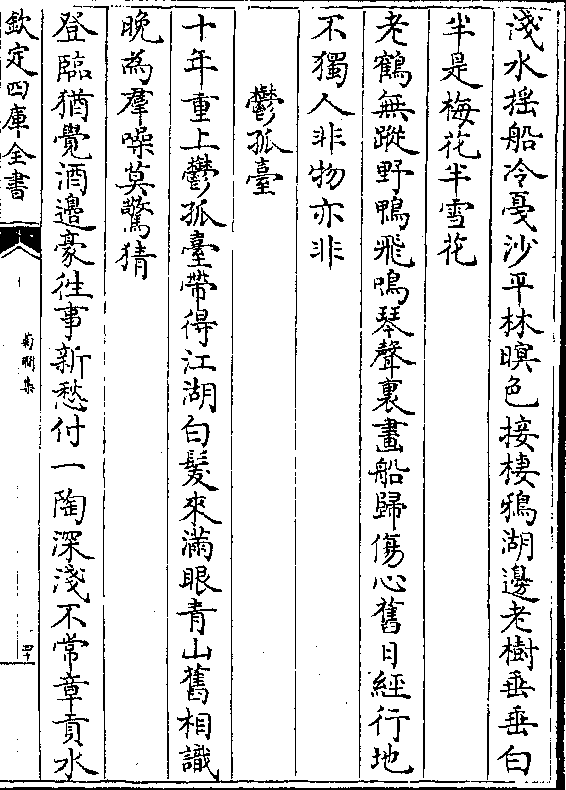 淺水揺船冷戛沙平林暝色接棲鴉湖邊老樹垂垂白
半是梅花半雪花
老鶴無蹤野鴨飛鳴琴聲裏畫船歸傷心舊日經行地
不獨人非物亦非
鬱孤臺
十年重上鬱孤臺帶得江湖白髪來滿眼青山舊相識
晚為羣噪莫驚猜
登臨猶覺酒邊豪徃事新愁付一陶深淺不常章貢水
欽定四庫全書
菊磵集
四十